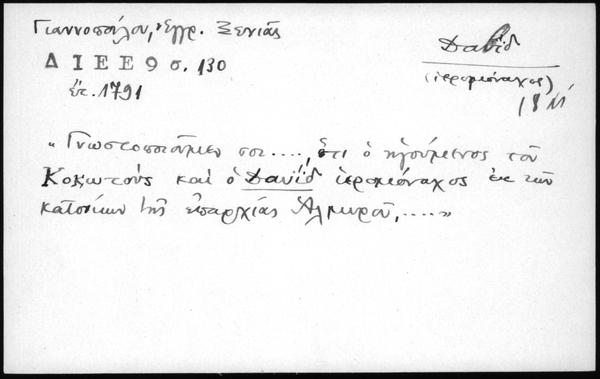 Γιαννοπούλου, Ἔγγρ. Ξενιᾶς
ΔΙΕΕ 9 σ. 130
ἔτ. 1791
Δαβὶδ
(ἱερομόναχος)
18
« Γνωστοποιοῦμεν σοι ...., ὅτι ὁ ἡγούμενος τοῦ
Κοκωτοὺς καὶ ὁ Δαυὶδ ἱερομόναχος ἐκ τῶν
κατοίκων τῆς ἐπαρχίας Ἁλμυροῦ, .... »